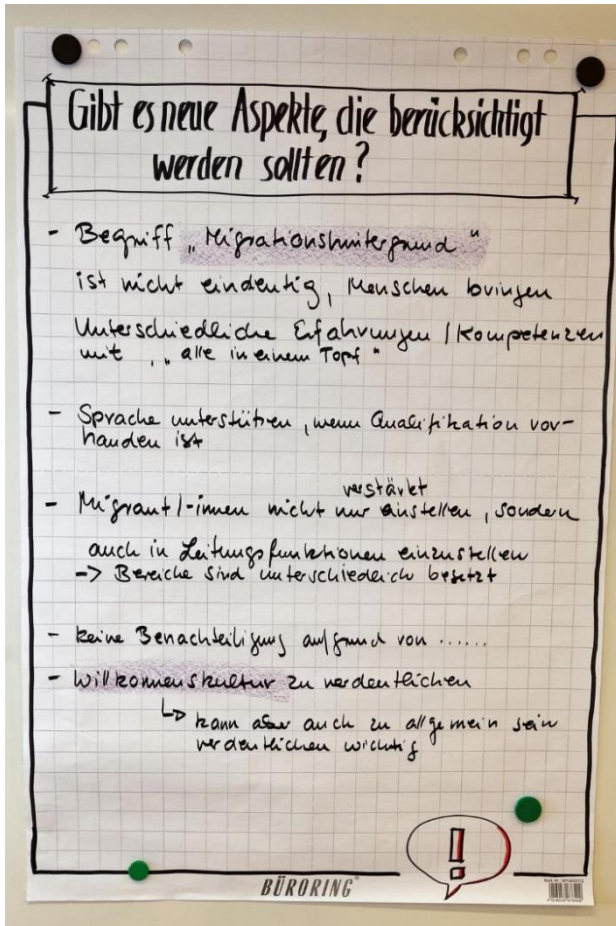 Gibt es neue Aspekte, die berücksichtigt
werden sollten?
- Begriff „Migrationshintergrund"
ist nicht eindeutig, Menschen bringen
Unterschiedliche Erfahrungen / Kompetenzen
mit, „alle in einem Topf"
- Sprache unterstützen, wenn Qualifikation vor-
handen ist
verstärkt
- Migrant/-innen nicht nur einstellen, sondern
auch in Leitungsfunktionen einzustellen
-> Bereiche sind unterschiedlich besetzt
- keine Benachteiligung aufgrund von ......
- Willkommenskultur zu verdeutlichen
↳ kann aber auch zu allgemein sein
verdeutlichen wichtig
!
BÜRORING